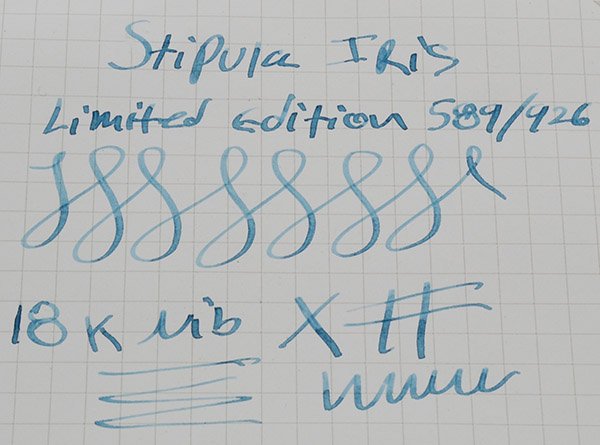 Stipula Iris
Limited Edition 589/926
18K Nib X